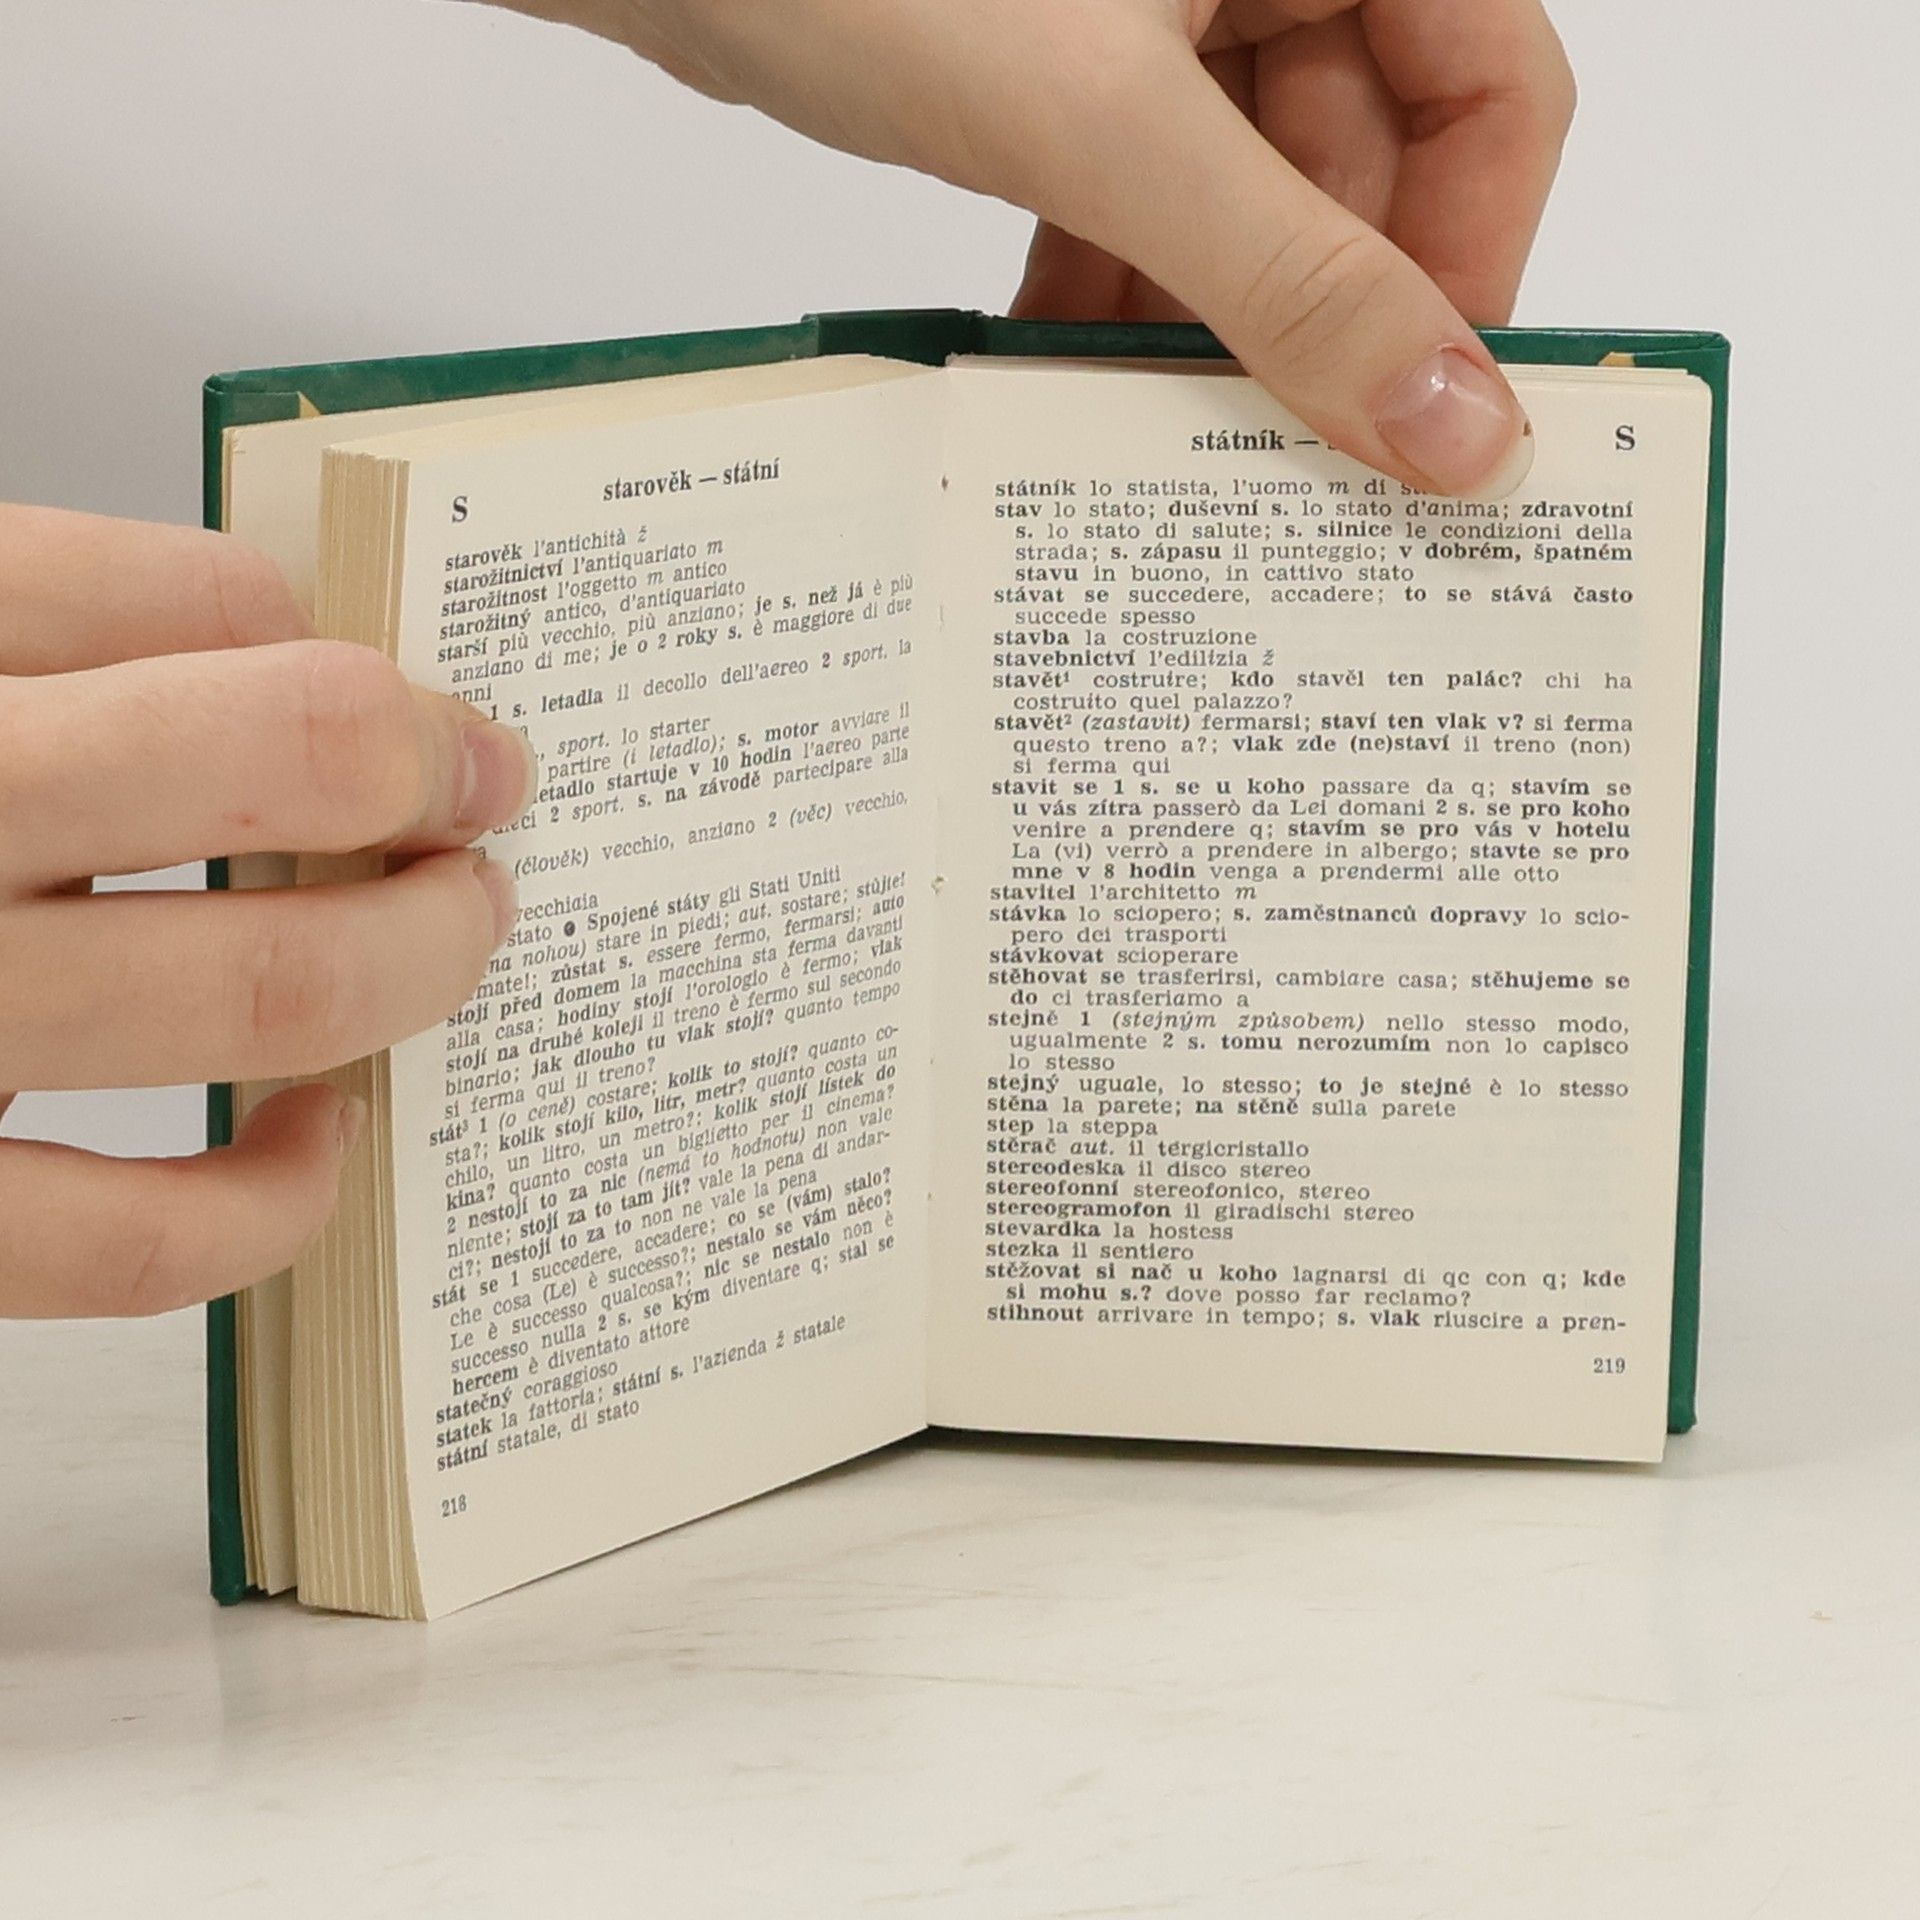 S
starověk — státní
starověk l'antichità ž
starožitnictví l'antiquariato m
starožitnost l'oggetto m antico
starožitný antico, d'antiquariato
starší più vecchio, più anziano; je s. než já è più
anziano di me; je o 2 roky s. è maggiore di due
anni
1 s. letadla il decollo dell'aereo 2 sport. la
sport. lo starter
partire (i letadlo); s. motor avviare il
letadlo startuje v 10 hodin l'aereo parte
2 sport. s. na závodě partecipare alla
(člověk) vecchio, anziano 2 (věc) vecchio,
vecchiaia
stato ● Spojené státy gli Stati Uniti
na nohou) stare in piedi; aut. sostare; stůjte!
zůstat s. essere fermo, fermarsi; auto
stojí před domem la macchina sta ferma davanti
alla casa; hodiny stojí l'orologio è fermo; vlak
stojí na druhé koleji il treno è fermo sul secondo
binario; jak dlouho tu vlak stojí? quanto tempo
si ferma qui il treno?
stát³ 1 (o ceně) costare; kolik to stojí? quanto co-
sta?; kolik stojí kilo, litr, metr? quanto costa un
chilo, un litro, un metro?; kolik stojí lístek do
kina? quanto costa un biglietto per il cinema?
2 nestojí to za nic (nemá to hodnotu) non vale
niente; stojí za to tam jít? vale la pena di andar-
ci?; nestojí to za to non ne vale la pena
stát se 1 succedere, accadere; co se (vám) stalo?
che cosa (Le) è successo?; nestalo se vám něco?
Le è successo qualcosa?; nic se nestalo non è
successo nulla 2 s. se kým diventare q; stal se
hercem è diventato attore
statečný coraggioso
statek la fattoria; státní s. l'azienda ž statale
státní statale, di stato
218
státník —
S
státník lo statista, l'uomo m di
stav lo stato; duševní s. lo stato d'anima; zdravotní
s. lo stato di salute; s. silnice le condizioni della
strada; s. zápasu il punteggio; v dobrém, špatném
stavu in buono, in cattivo stato
stávat se succedere, accadere; to se stává často
succede spesso
stavba la costruzione
stavebnictví l'edilizia ž
stavět¹ costruire; kdo stavěl ten palác? chi ha
costruito quel palazzo?
stavět² (zastavit) fermarsi; staví ten vlak v? si ferma
questo treno a?; vlak zde (ne)staví il treno (non)
si ferma qui
stavit se 1 s. se u koho passare da q; stavím se
u vás zítra passerò da Lei domani 2 s. se pro koho
venire a prendere q; stavím se pro vás v hotelu
La (vi) verrò a prendere in albergo; stavte se pro
mne v 8 hodin venga a prendermi alle otto
stavitel l'architetto m
stávka lo sciopero; s. zaměstnanců dopravy lo scio-
pero dei trasporti
stávkovat scioperare
stěhovat se trasferirsi, cambiare casa; stěhujeme se
do ci trasferiamo a
stejně 1 (stejným způsobem) nello stesso modo,
ugualmente 2 s. tomu nerozumím non lo capisco
lo stesso
stejný uguale, lo stesso; to je stejné è lo stesso
stěna la parete; na stěně sulla parete
step la steppa
stěrač aut. il tergicristallo
stereodeska il disco stereo
stereofonní stereofonico, stereo
stereogramofon il giradischi stereo
stevardka la hostess
stezka il sentiero
stěžovat si nač u koho lagnarsi di qc con q; kde
si mohu s.? dove posso far reclamo?
stihnout arrivare in tempo; s. vlak riuscire a pren-
219